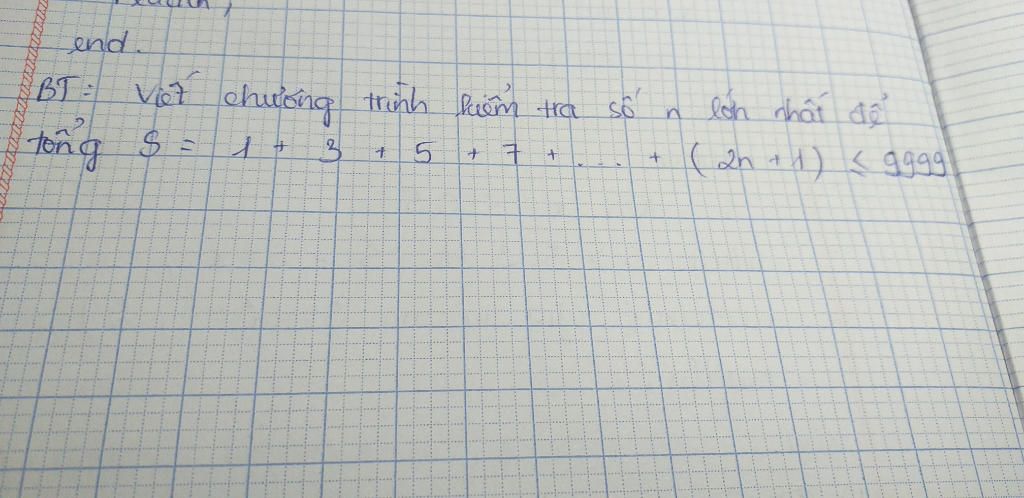 end.
BT: Viết chương trình kiểm tra số n lớn nhất để
tổng S = 1 + 3 + 5 + 7 + ... + (2n + 1) ≤ 9999